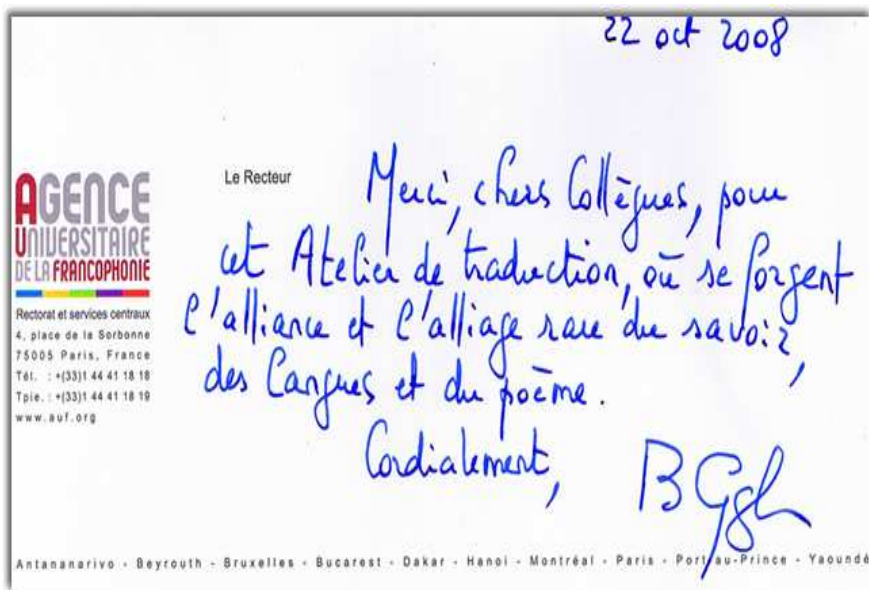 22 oct 2008
AGENCE
UNIVERSITAIRE
DE LA FRANCOPHONIE
Rectorat et services centraux
4, place de la Sorbonne
75005 Paris, France
Tél. : +(33)1 44 41 18 18
Tpie. : +(33)1 44 41 18 19
www.auf.org
Le Recteur
Merci, chers Collègues, pour
cet Atelier de traduction, où se forgent
l'alliance et l'alliage rare du savoir,
des langues et du poème.
Cordialement,
Antananarivo - Beyrouth - Bruxelles - Bucarest - Dakar - Hanoi - Montréal - Paris - Port-au-Prince - Yaoundé